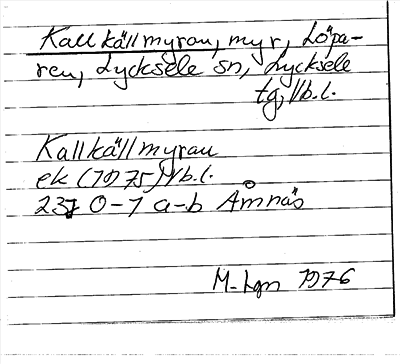 Kallkällmyran, myr, Löpa-
ren, Lycksele sn, Lycksele
tg, Vb.l.
Kallkällmyran
ek (1975) Vb.l.
23J 0-1 a-b Åmnäs
M-Lgn 1976